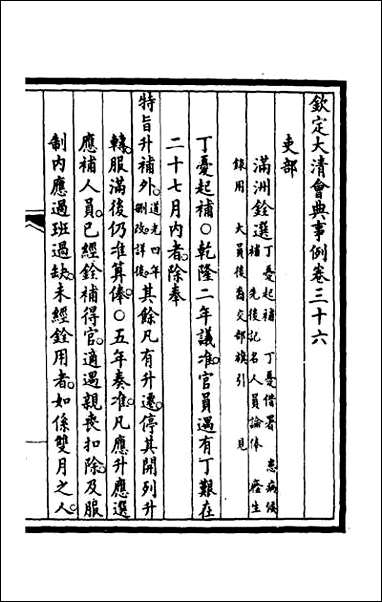 欽定大清會典事例卷三十六
吏部
滿洲銓選丁憂起補 丁憂借署 患病候
補 先後記名人員論俸 廕生
錄用 大員後裔交部旗引 見
丁憂起補○乾隆二年議准官員遇有丁艱在
二十七月內者除奉
特旨升補外道光四年
刪改詳後其餘凡有升遷停其開列升
轉服滿後仍准算俸○五年奏准凡應升應選
應補人員已經銓補得官適遇親喪扣除及服
制內應過班過缺未經銓用者如係雙月之人